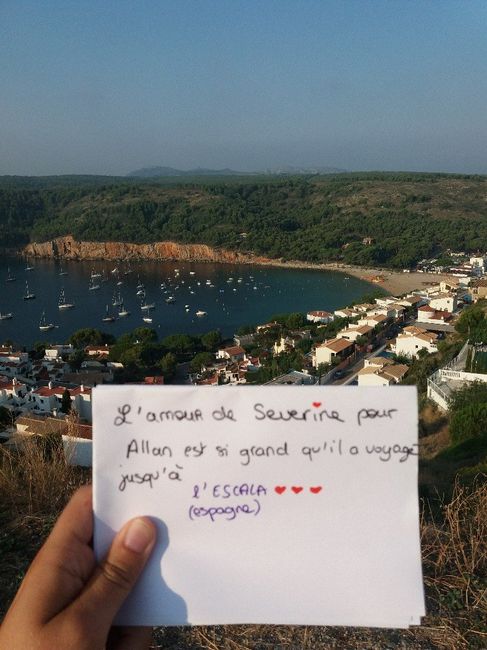 L'amour de Severine pour
Allan est si grand qu'il a voyagé
jusqu'à
l'ESCALA ♥ ♥ ♥
(espagne)